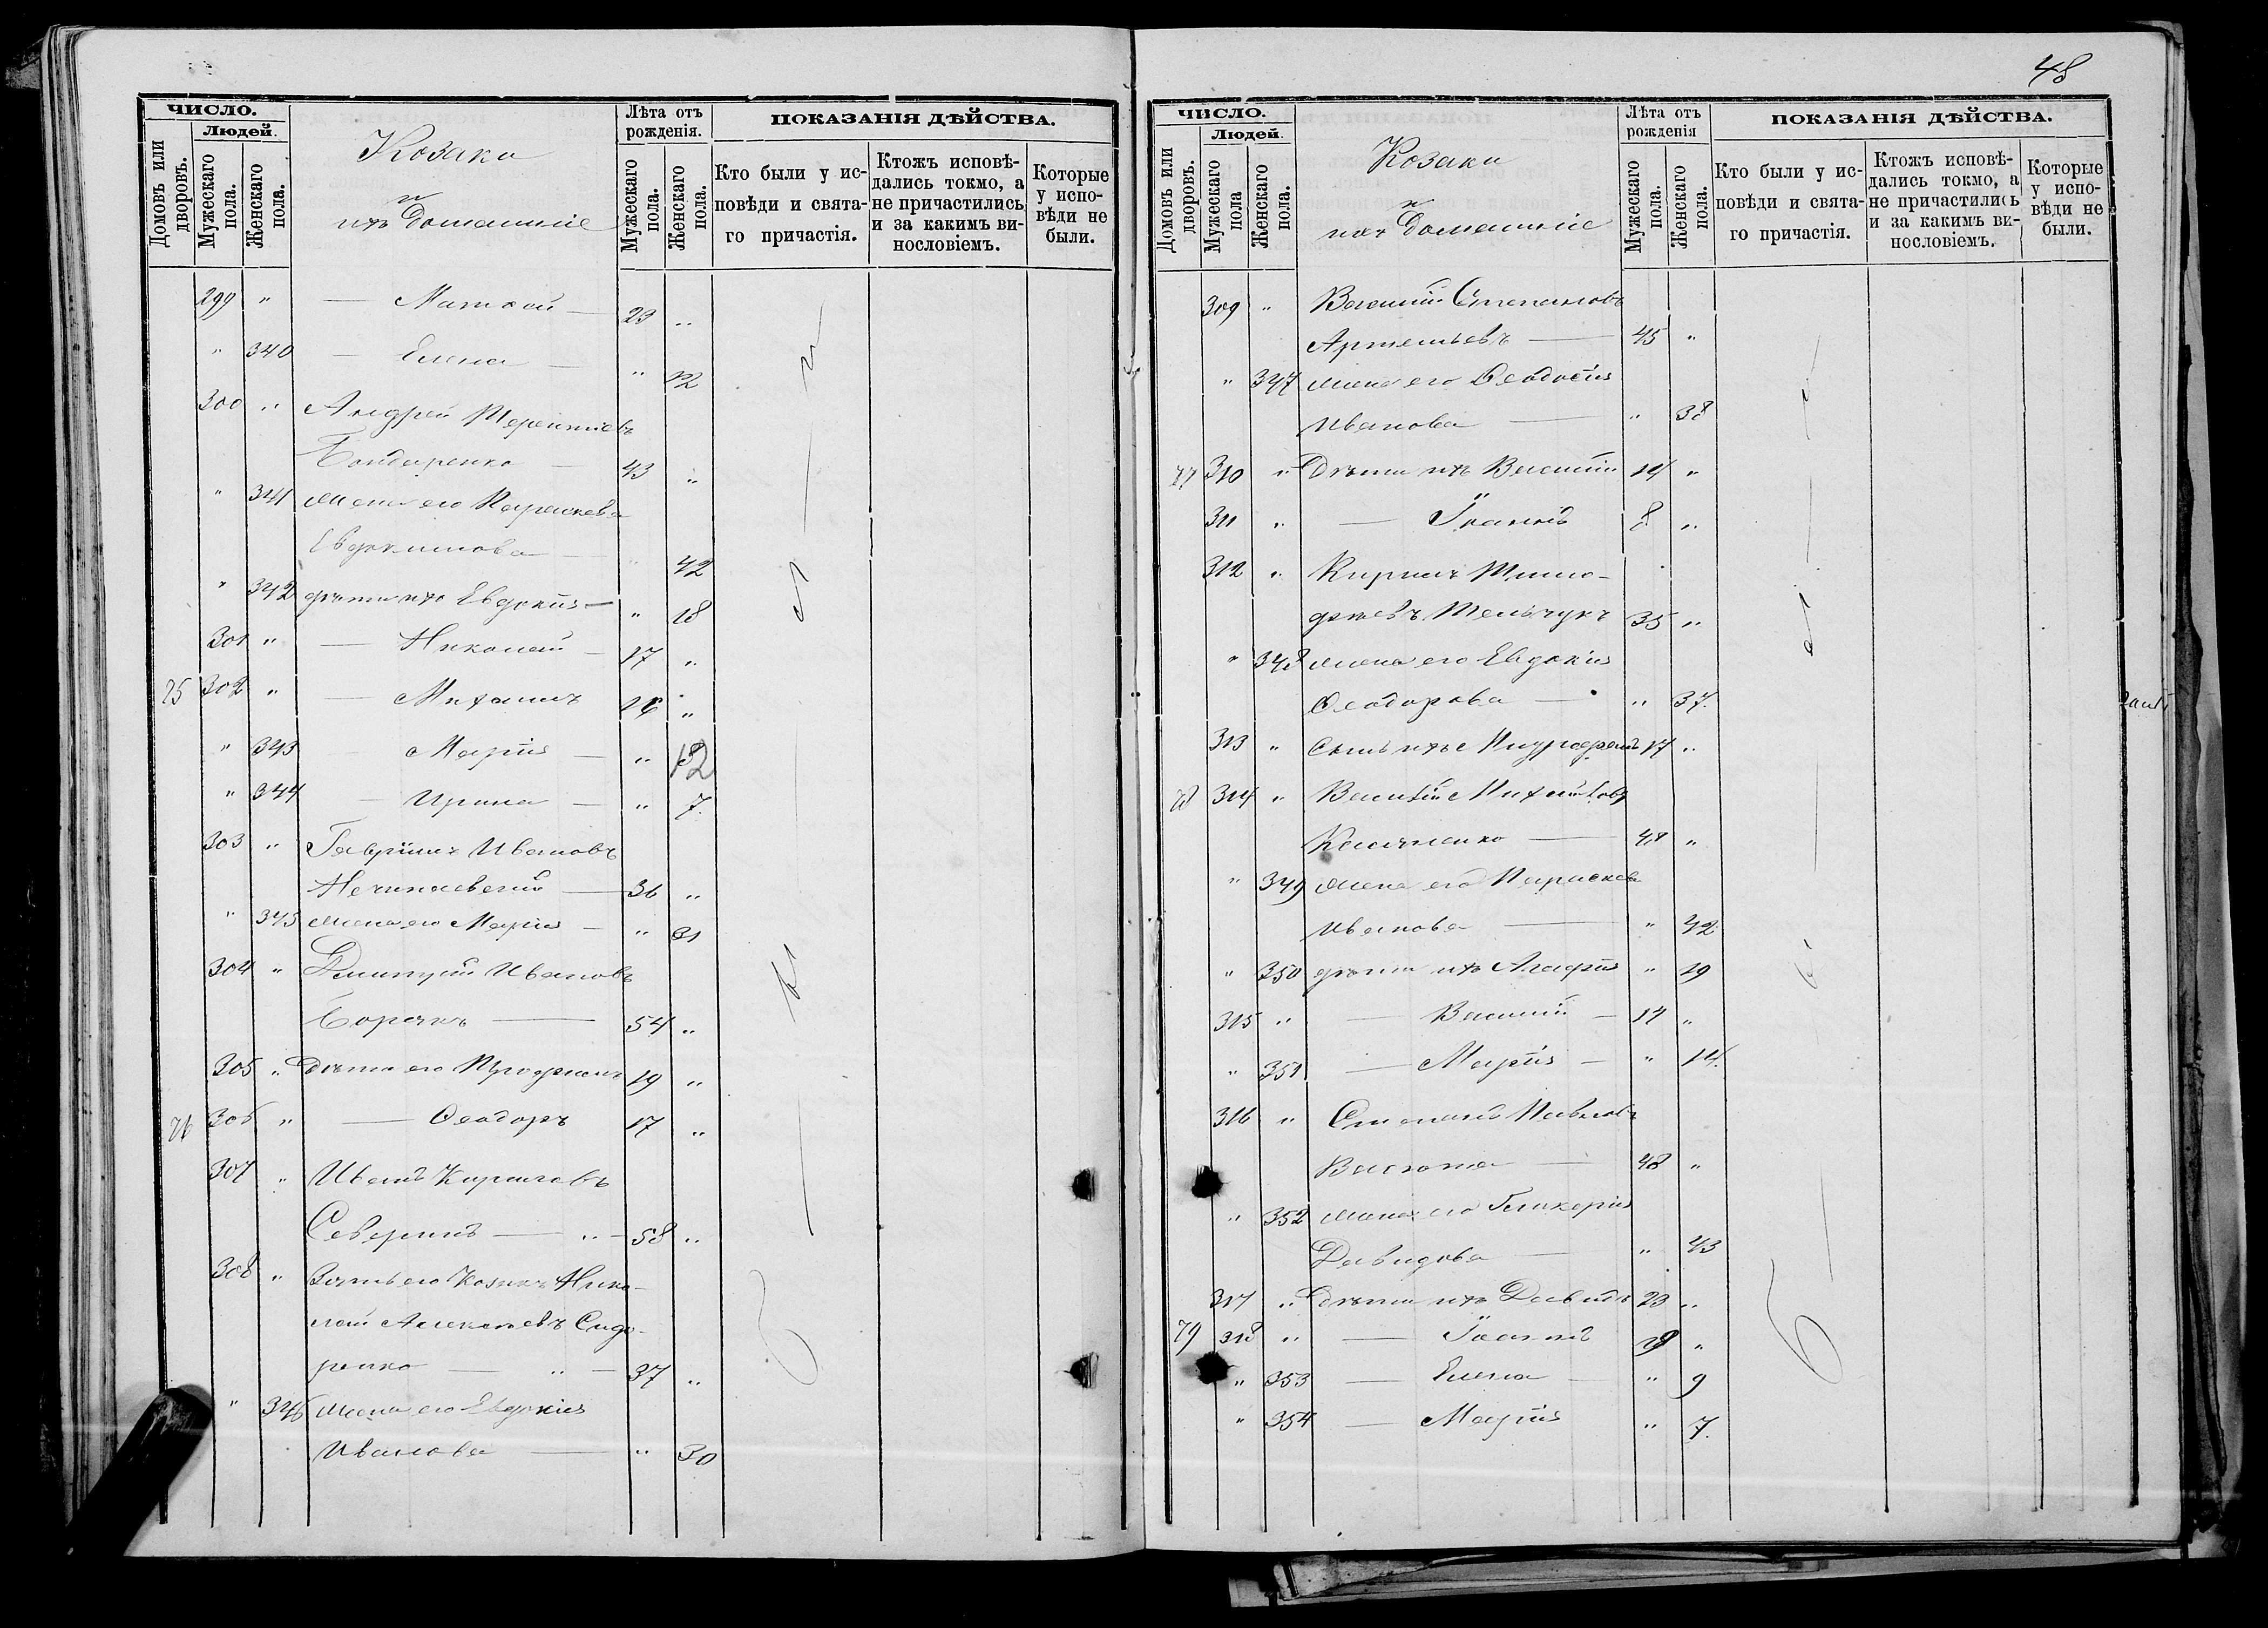 ЧИСЛО.
Людей.
Домовъ или дворовъ.
Мужескаго пола.
Женскаго пола.
Козаки
и
ихъ домашніе
Лѣта отъ рожденія.
Мужескаго пола.
Женскаго пола.
ПОКАЗАНІЯ ДѢЙСТВА.
Кто были у исповѣди и святаго причастія.
Ктожъ исповѣдались токмо, а не причастились и за какимъ винословіемъ.
Которые у исповѣди не были.
299 " — Матѳей — 23 "
" 340 — Елена — " 12
300 " Андрей Терентіевъ
Бондаренко — 43 "
" 341 жена его Параскева
Евдокимова — " 42
" 342 дѣти ихъ Евдокія — " 18
301 " — Николай — 17 "
75 302 " — Михаилъ "
" 343 — Марія — " 12
" 344 — Ирина — " 7.
303 " Гавріилъ Ивановъ
— 36 "
" 345 жена его Марія — " 31
304 " Димитрій Ивановъ
— 54 "
305 " дѣти его 19 "
76 306 " — Ѳеодоръ 17 "
307 " Иванъ Кириловъ
Северинъ — " — 58 "
308 " Зять его козакъ Нико-
лай Алексѣевъ Сидо-
ренко — " — 37 "
" 346 жена его Евдокія
Иванова — " 30
были
48
ЧИСЛО.
Людей.
Домовъ или дворовъ.
Мужескаго пола
Женскаго пола.
Козаки
и
ихъ домашніе
Лѣта отъ рожденія
Мужескаго пола.
Женскаго пола.
ПОКАЗАНІЯ ДѢЙСТВА.
Кто были у исповѣди и святаго причастія.
Ктожъ исповѣдались токмо, а не причастились и за какимъ винословіемъ.
Которые у исповѣди не были.
309 " Василій Степановъ
Артемьевъ — 45 "
" 347 жена его Ѳеодосія
Иванова — " 38
77 310 " дѣти ихъ Василій 14 "
311 " — Іоаннъ 8 "
312 " Кирилъ Тимо-
феевъ Тельчукъ 35 "
" 348 жена его Евдокія
Ѳеодорова — " 37.
313 " сынъ ихъ 17 "
78 314 " Василій Михайловъ
— "
" 349 жена его Параскева
Иванова — " 42
" 350 дѣти ихъ Агафія " 19
315 " — Василій — 17 "
" 351 — Марія — " 14.
316 " Степанъ Павловъ
Высота — 48 "
" 352 жена его Гликерія
Давидова — " 43
317 " дѣти ихъ Давидъ 23 "
79 318 " — Іоаннъ "
" 353 — Елена — " 9
" 354 — Марія " 7.
были